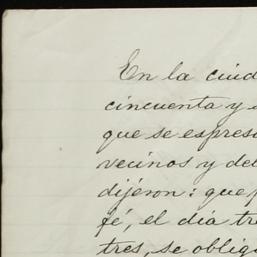 En la ciud
cincuenta y
que se espres
vecinos y de
dijeron: que
fé, el dia tr
tres, se oblig